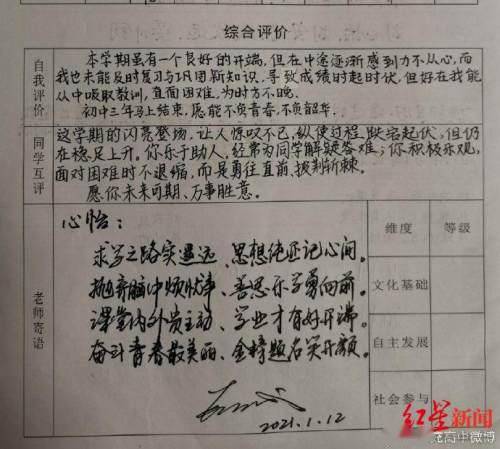 综合评价
自我评价
本学期虽有一个良好的开端,但在中途逐渐感到力不从心,而
我也未能及时复习与巩固新知识,导致成绩时起时伏,但好在我能
从中吸取教训,直面困难,为时方不晚。
初中三年马上结束,愿能不负青春,不负韶华。
同学互评
这学期的闪亮登场,让人惊叹不已,纵使过程跌宕起伏,但仍
在稳足上升。你乐于助人,经常为同学解疑答难;你积极乐观,
面对困难时不退缩,而是勇往直前、披荆斩棘。
愿你未来可期、万事胜意。
老师寄语
心怡:
求学之路实遥远、思想纯正记心间。
抛弃脑中烦忧事、善思乐学勇向前。
课堂内外贵主动、学业才有好开端。
奋斗青春最美丽、金榜题名笑开颜。
2021.1.12
维度 等级
文化基础
自主发展
社会参与
红星新闻
中微博